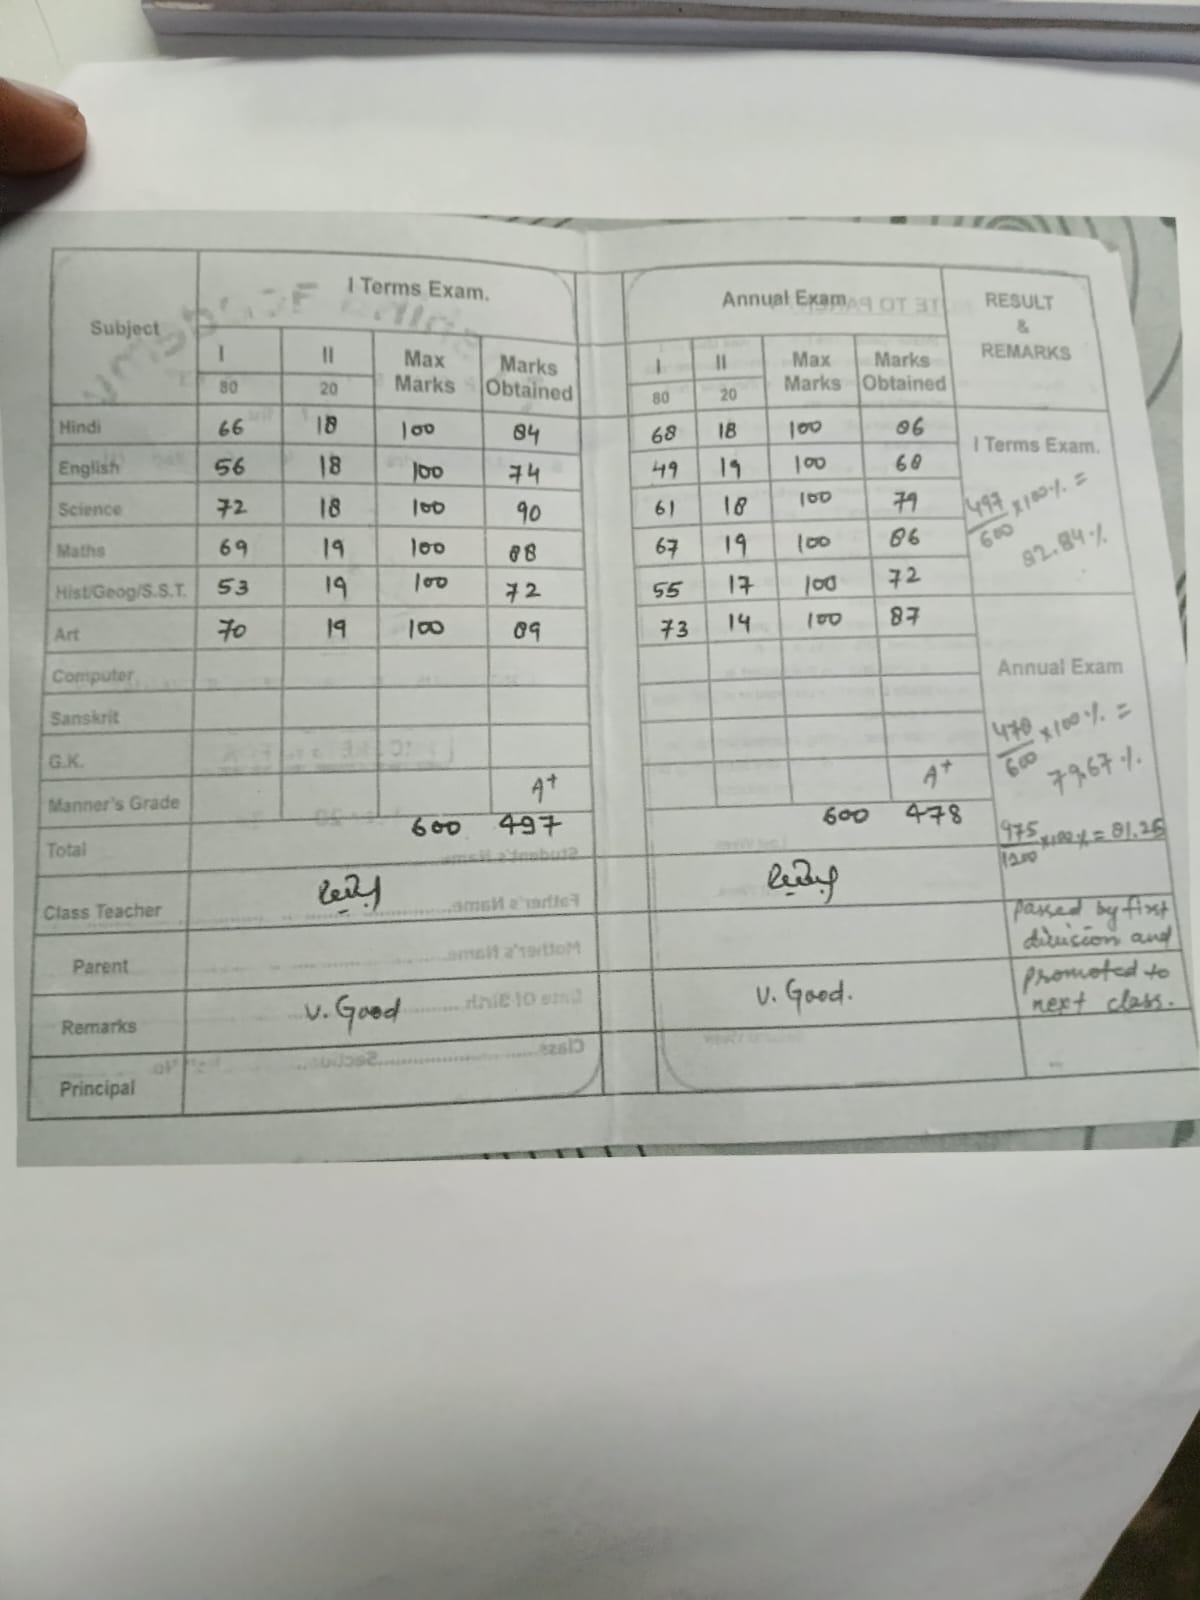 Subject I Terms Exam. Annual Exam RESULT & REMARKS
I II Max Marks Marks Obtained I II Max Marks Marks Obtained
80 20 80 20
Hindi 66 18 100 84 68 18 100 86
I Terms Exam.
English 56 18 100 74 49 19 100 68
Science 72 18 100 90 61 18 100 79
497/600 x100% =
82.84%
Maths 69 19 100 88 67 19 100 86
Hist/Geog/S.S.T. 53 19 100 72 55 17 100 72
Art 70 19 100 89 73 14 100 87
Computer
Annual Exam
Sanskrit
G.K.
478/600 x100% =
79.67%
Manner's Grade A+ A+
Total 600 497 600 478
975/1200 x100% = 81.25
Class Teacher
Parent
passed by first
division and
Remarks V. Good V. Good.
promoted to
next class.
Principal